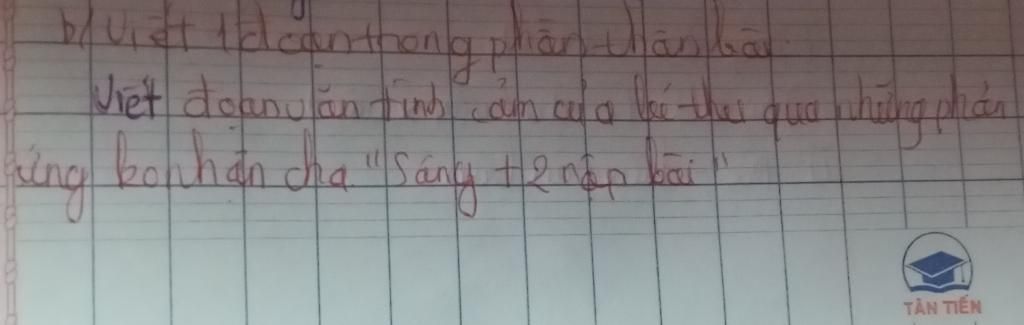 b/ Viết 1 đoạn trong phần thân bài
Viết đoạn văn tình cảm của bé thu qua những phản
ứng ko nhận cha "Sáng t2 nộp bài"
TÂN TIẾN